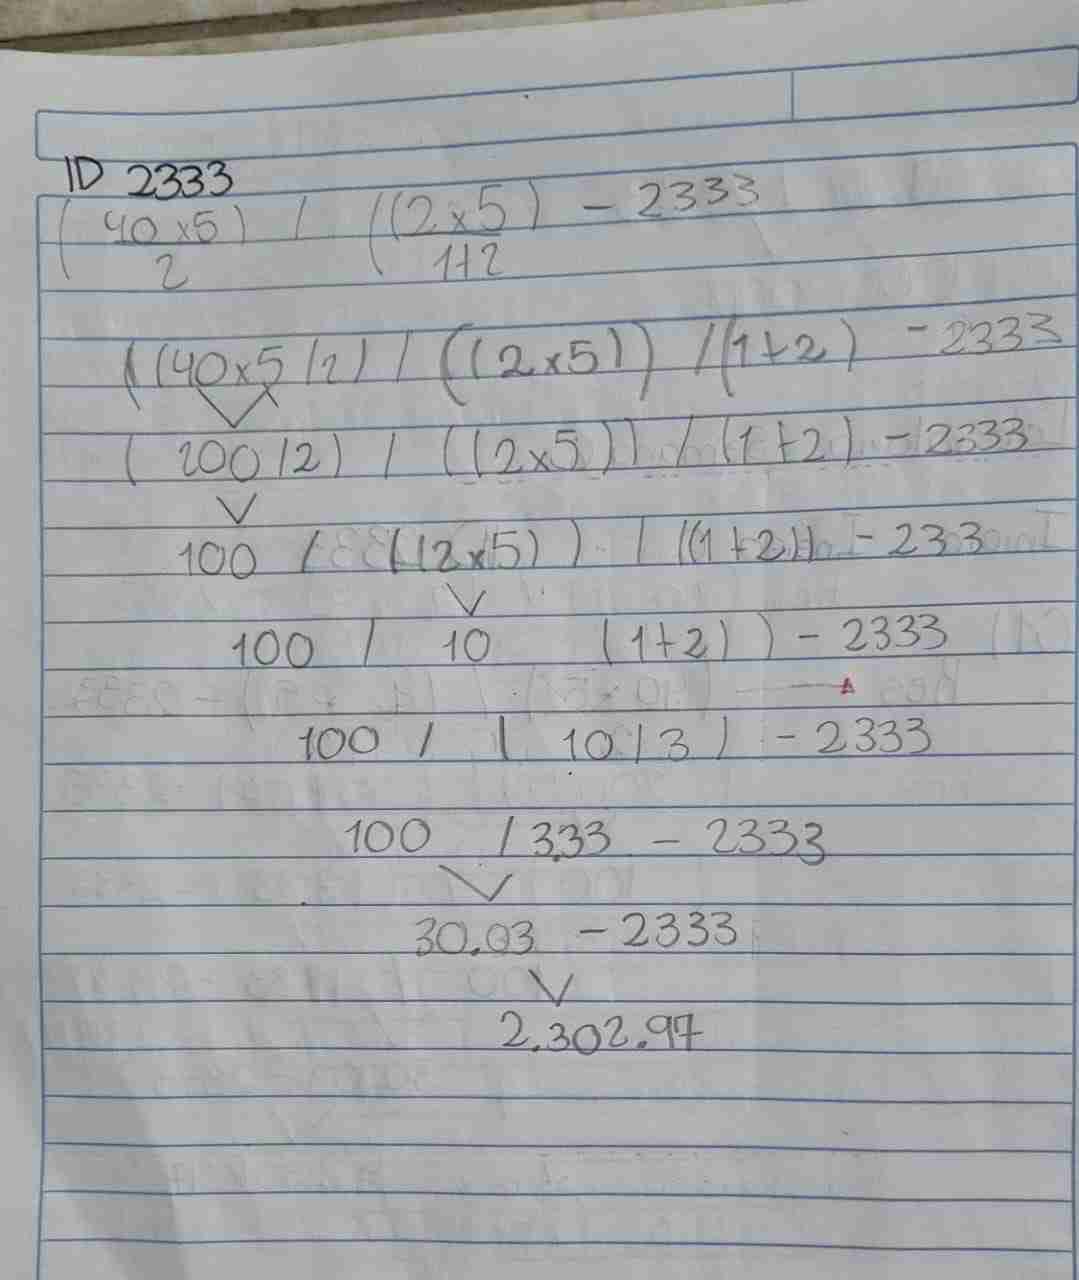 ID 2333
(40 x 5) / ((2 x 5) - 2333
2 1+2
((40x5/2) / ((2x5)) /(1+2) - 2333
( 200/2) / ((2x5)) / (1+2) - 2333
100 / ((2x5)) / ((1+2)) - 2333
100 / 10 (1+2)) - 2333
100 / ( 10/3) - 2333
100 / 3.33 - 2333
30.03 - 2333
2.302.97